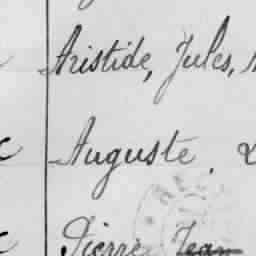 Aristide, Jules,
Auguste.
Pierre Jean